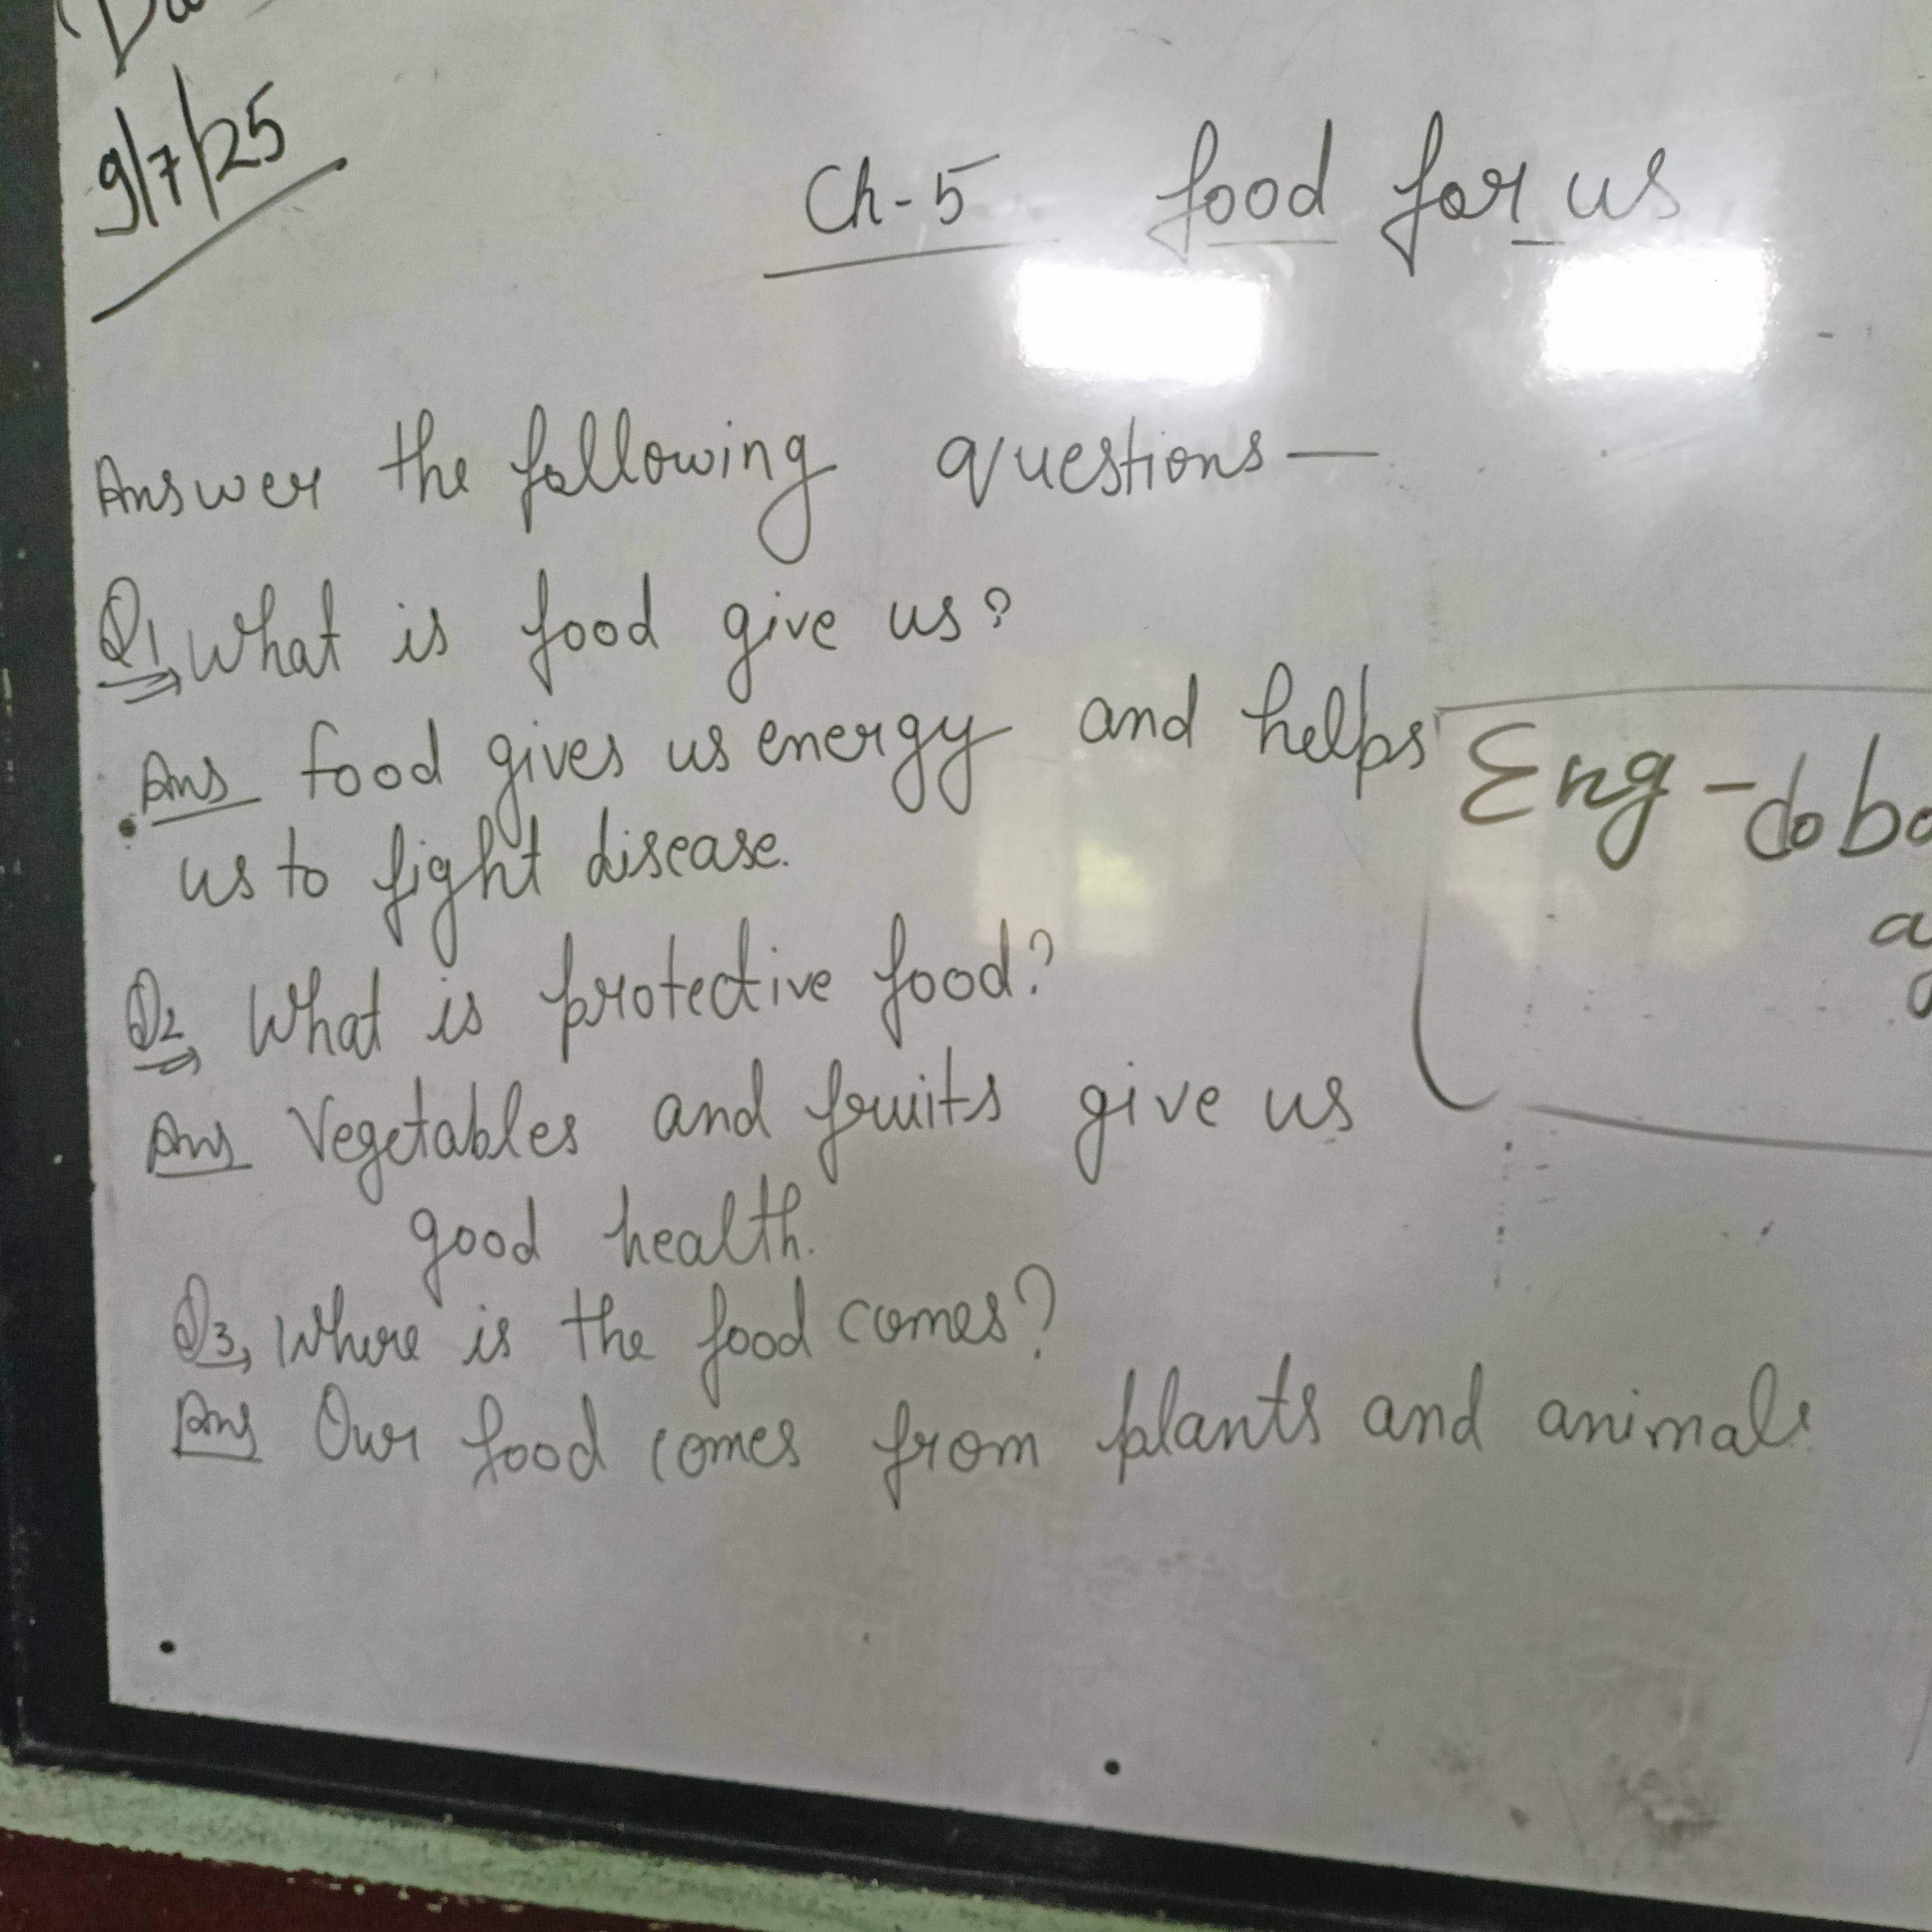 9/7/25
Ch-5 food for us
Answer the following questions—
Q1, What is food give us?
Ans food gives us energy and helps
us to fight disease.
Q2, What is protective food?
Ans Vegetables and fruits give us
good health.
Q3, Where is the food comes?
Ans Our food comes from plants and animals
Eng -do